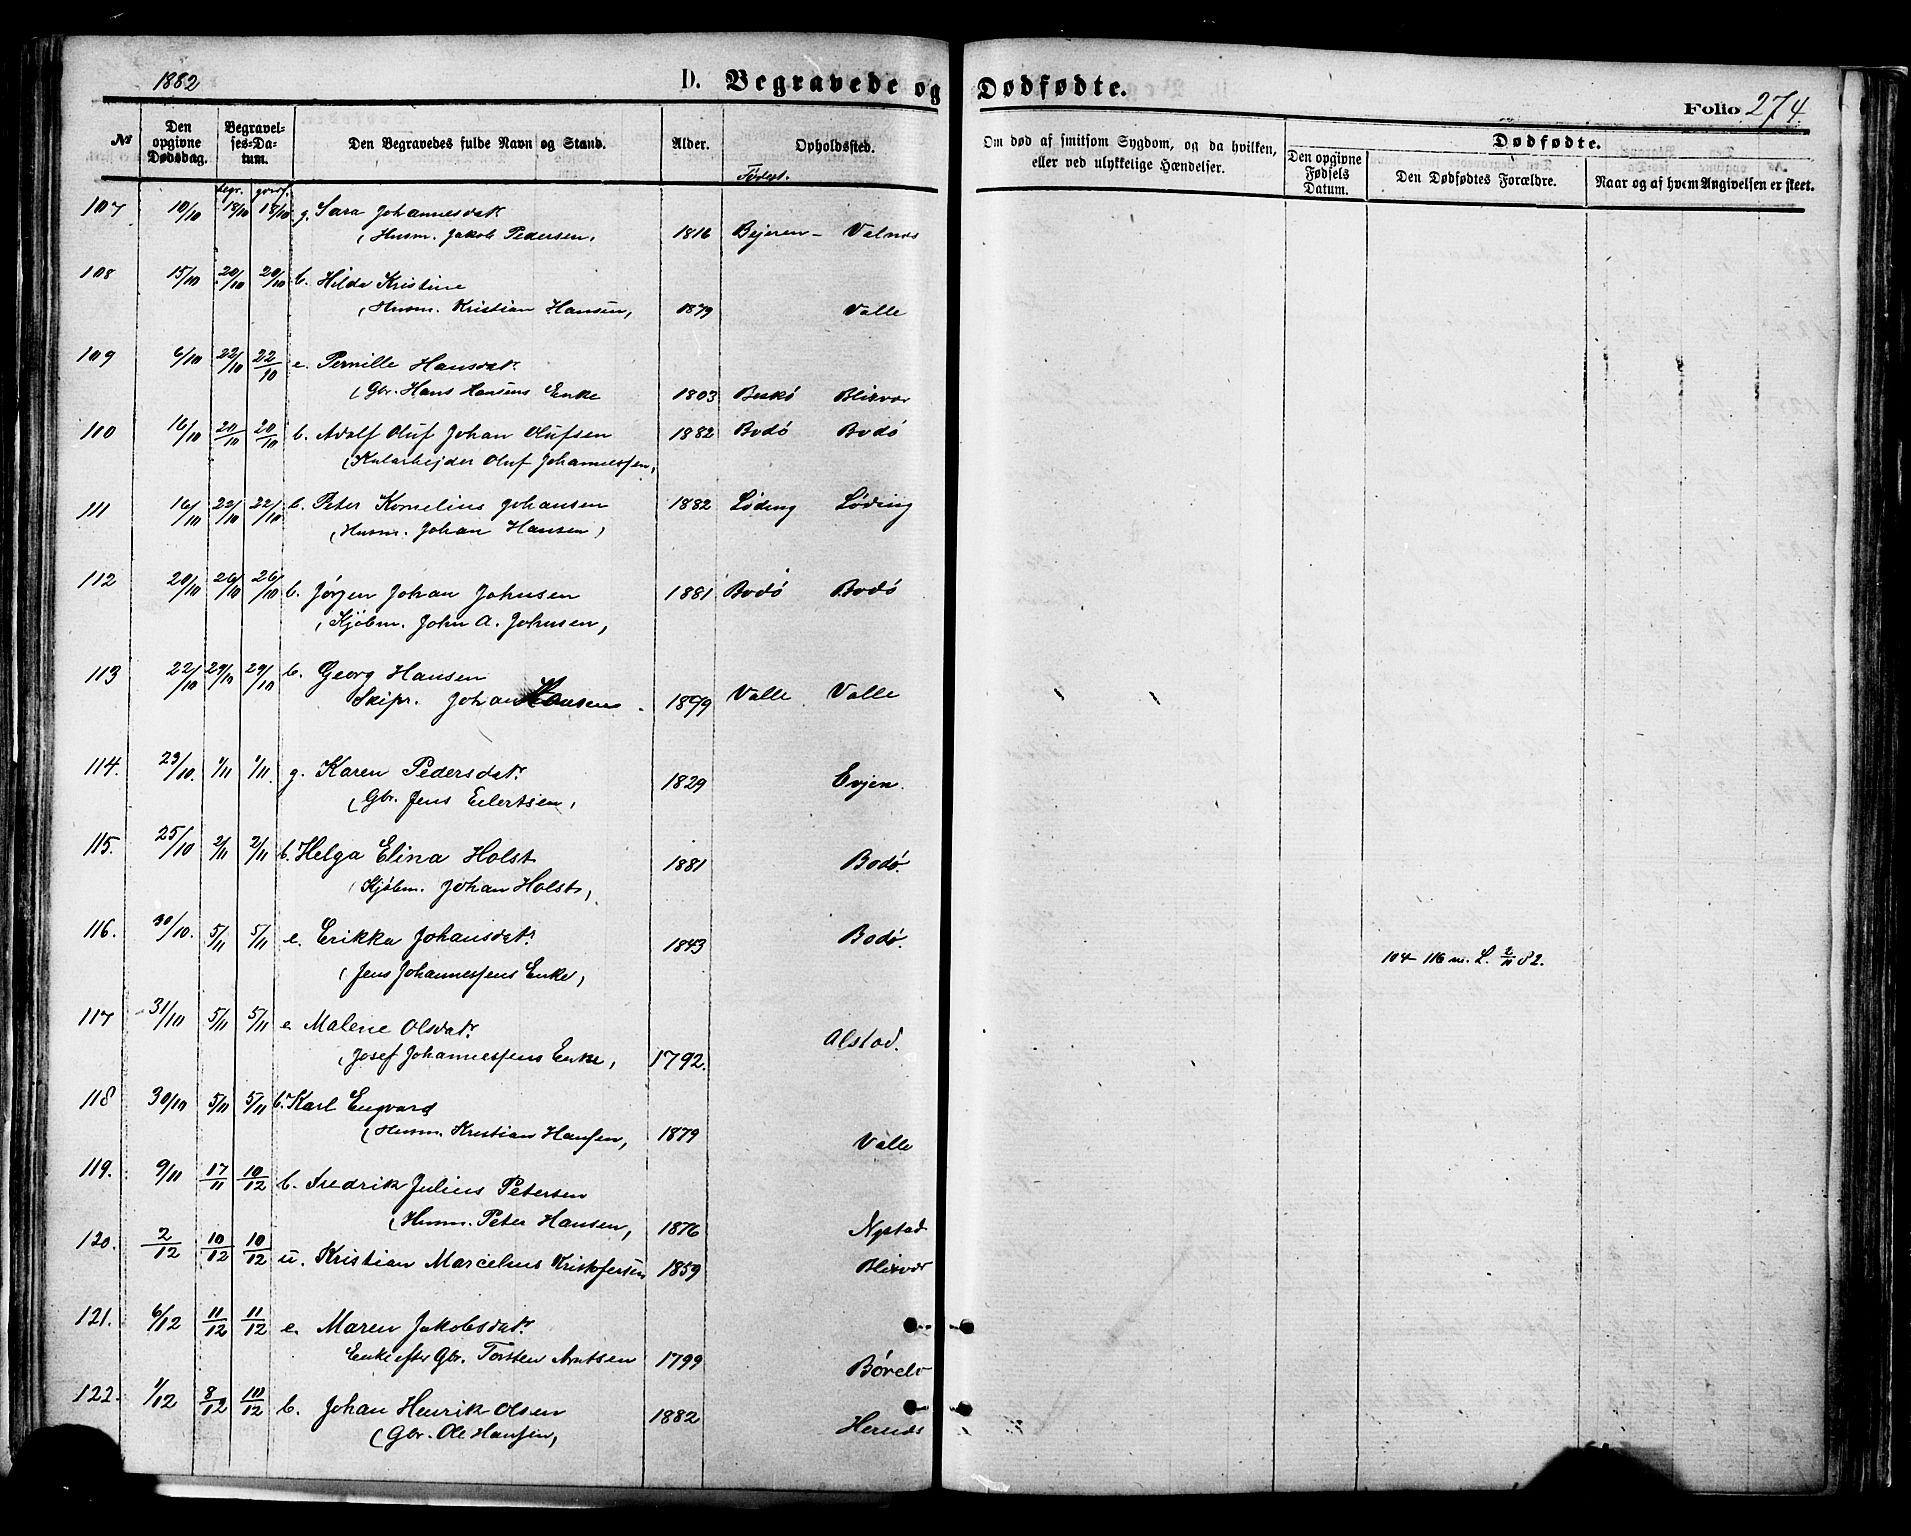 1882
D. Begravede og Dødfødte.
Folio 274
№ Den opgivne Dødsdag. Begravelses-Datum. Den Begravedes fulde Navn og Stand. Alder. Opholdssted. Om død af smitsom Sygdom, og da hvilken, eller ved ulykkelige Hændelser. Dødfødte.
Den opgivne Fødsels Datum. Den Dødfødtes Forældre. Naar og af hvem Angivelsen er skeet.
begr. Fødest.
107 10/10 18/10 18/10 g. Sara Johannesdatr
(Husm. Jakob Pedersen, 1816 Bejeren - Valnes
108 15/10 20/10 20/10 b. Hilda Kristine
(Husm. Kristian Hansen, 1879 Valle
109 6/10 22/10 22/10 e. Pernille Hansdatr
(Gbr. Hans Hansens Enke 1803 Blixvær
110 16/10 20/10 20/10 b. Adolf Oluf Johan Olufsen 1882 Bodø Bodø
(Kularbejder Oluf Johannessen,
111 16/10 22/10 22/10 b. Peter Kornelius Johansen 1882 Løding Løding
(Husm. Johan Hansen,
112 20/10 26/10 26/10 b. Jørgen Johan Johnsen 1881 Bodø Bodø
(Kjøbm. John A. Johnsen,
113 22/10 29/10 29/10 b. Georg Hansen
Skipr. Johan Hansen 1879 Valle Valle
114. 23/10. 1/11 1/11. g. Karen Pedersdatr.
(Gbr. Jens Eilertsen, 1829 Evjen.
115. 25/10 2/11 2/11 b. Helga Elina Holst
(Kjøbm. Johan Holst, 1881 Bodø.
116. 30/10. 5/11 5/11 e. Erikka Johansdatr.
(Jens Johannessens Enke, 1843 Bodø.
104-116 m. L. 2/11 82.
117 31/10 5/11 5/11 e. Malene Olsdatr.
(Josef Johannessens Enke, 1792. Alstad.
118 30/10 5/11 5/11 b. Karl Engvard
(Husm. Kristian Hansen, 1879 Valle
119. 9/11 17/11 10/12 b. Fredrik Julius Petersen
(Husm. Peter Hansen, 1876 Nystad
120. 2/12 10/12 10/12 u. Kristian Marcelius Kristofersen 1859 Blixvær
121. 6/12 11/12 11/12 e. Maren Jakobsdatr.
Enke efter Gbr. Torsten Arntsen 1799 Børelv
122. 1/12 8/12 10/12 b. Johan Henrik Olsen 1882 Hernes
(Gbr. Ole Hansen,